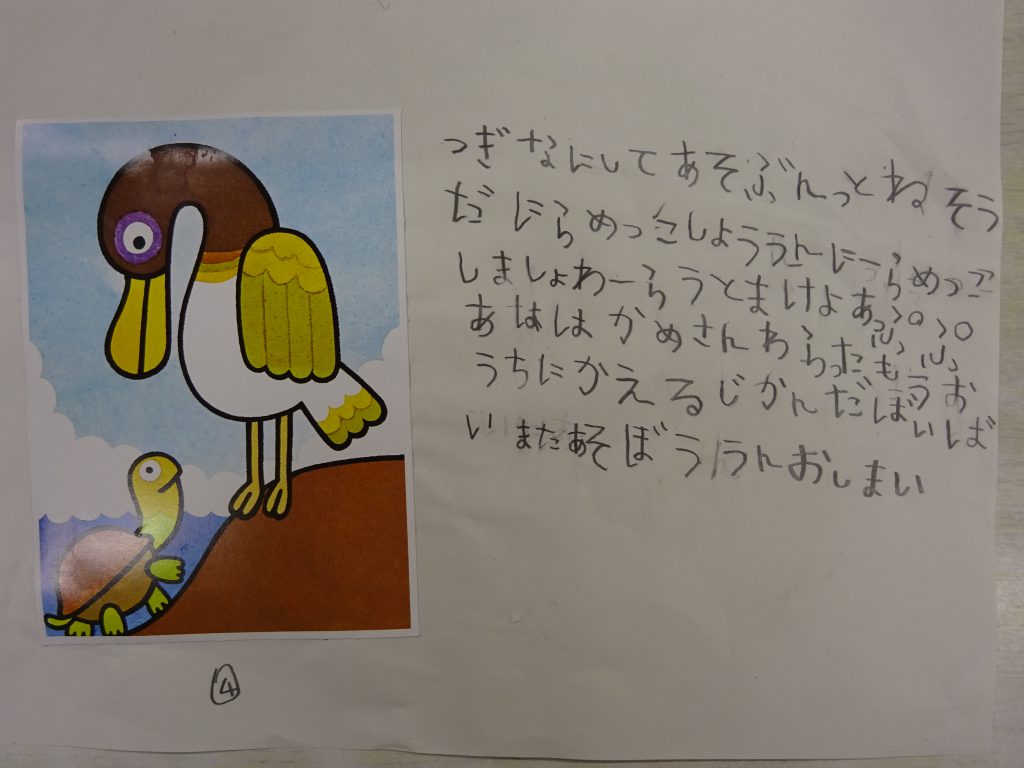 つぎなにしてあそぶんっとね そう
だ にらめっこしよううんにーらめっこ
しましょわーらうとまけよあっぷっぷ
あははかめさんわらったもうお
うちにかえるじかんだばいば
いまたあそぼううんおしまい
④